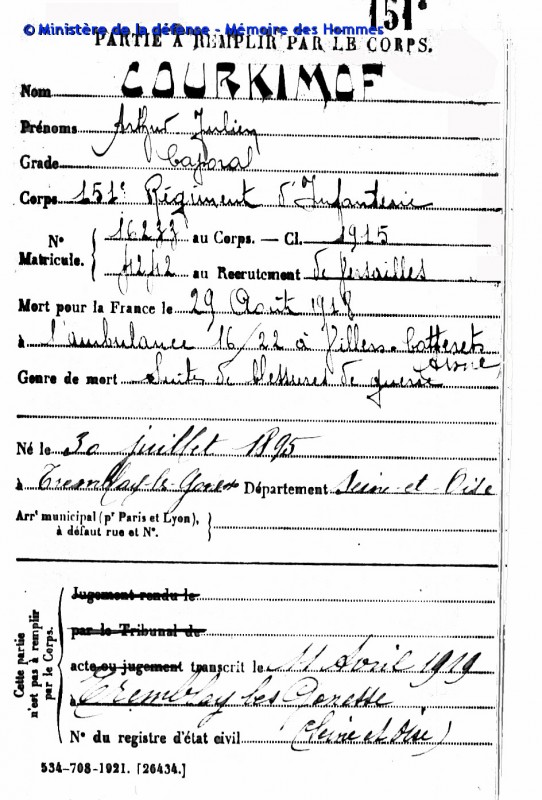 151e
© Ministère de la défense - Mémoire des Hommes
PARTIE À REMPLIR PAR LE CORPS.
Nom COURKIMOF
Prénoms Arthur Julien
Grade Caporal
Corps 151e Régiment d'Infanterie
N° Matricule. 16233 au Corps. — Cl. 1915
4242 au Recrutement de Versailles
Mort pour la France le 29 Août 1918
à l'ambulance 16/22 à Villers-Cotterets
Aisne
Genre de mort Suites de blessures de guerre
Né le 30 juillet 1895
à Tremblay-les-Gonesse Département Seine-et-Oise
Arrt municipal (pr Paris et Lyon),
à défaut rue et N°.
Cette partie n'est pas à remplir par le Corps.
Jugement rendu le
par le Tribunal de
acte ou jugement transcrit le 11 Avril 1919
à Tremblay les Gonesse
(Seine et Oise)
N° du registre d'état civil
534-708-1921. [26434.]